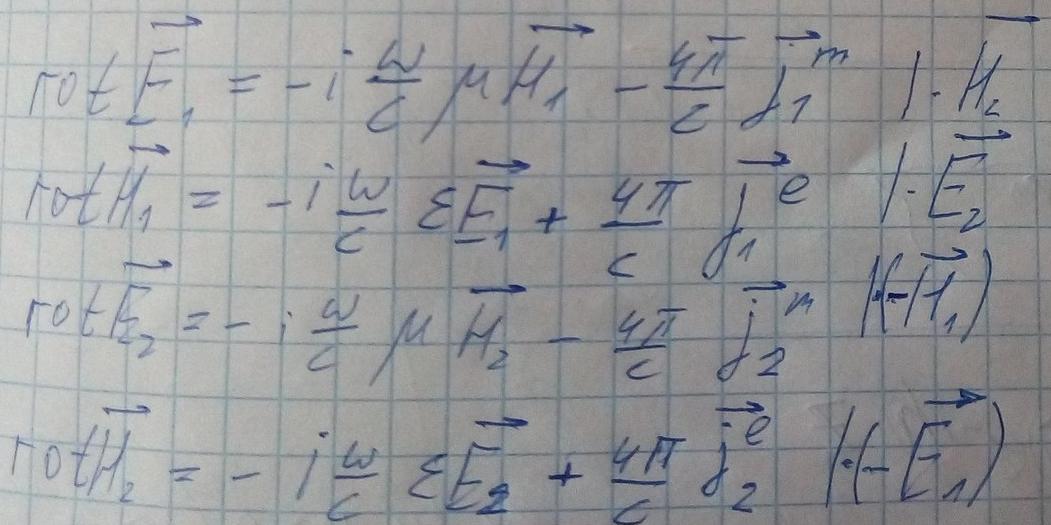 rot E⃗₁ = -i ω/c μ H⃗₁ - 4π/c j⃗₁ᵐ | · H⃗₂
rot H⃗₁ = -i ω/c ε E⃗₁ + 4π/c j⃗₁ᵉ | · E⃗₂
rot E⃗₂ = -i ω/c μ H⃗₂ - 4π/c j⃗₂ᵐ | · (-H⃗₁)
rot H⃗₂ = -i ω/c ε E⃗₂ + 4π/c j⃗₂ᵉ | · (-E⃗₁)